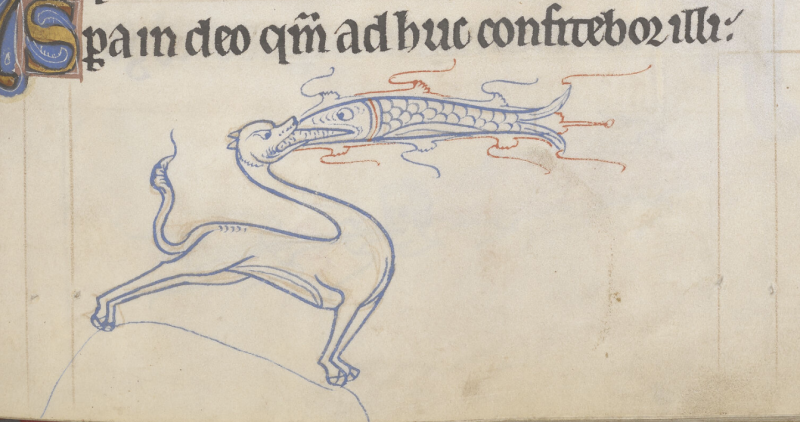 Spa in deo qm̄ ad huc confitebor illi: